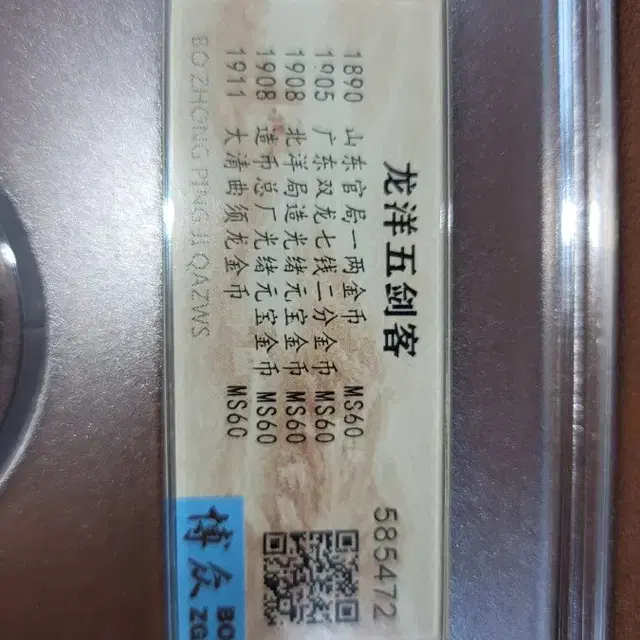 龙洋五剑客
1890 山东官局一两金币 MS60
1905 广东双龙七钱二分金币 MS60
1908 北洋局造光绪元宝金币 MS60
1908 造币总厂光绪元宝金币 MS60
1911 大清曲须龙金币 MS60
BO ZHONG PING JI QAZWS
585472
博众
BO
ZG